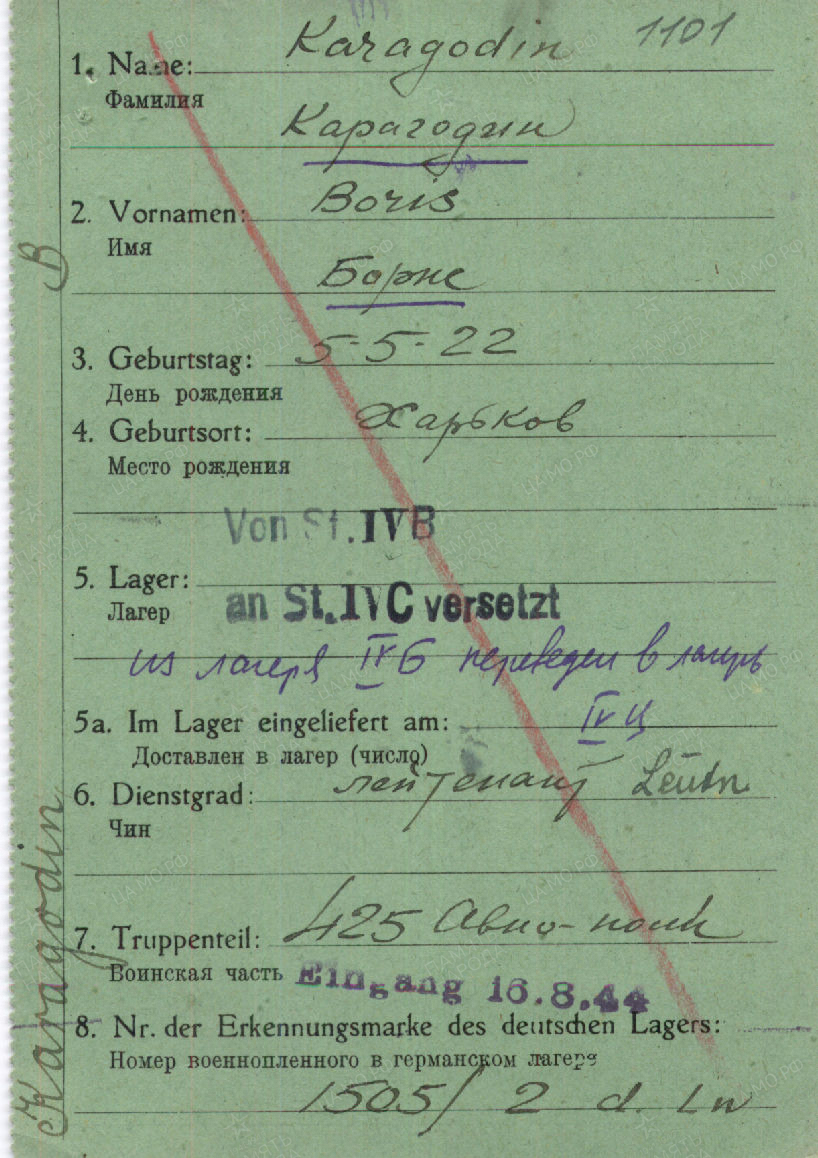 Karagodin 1101
1. Name:
Фамилия
Карагодин
Boris
2. Vornamen:
Имя
Борис
B
3. Geburtstag: 5-5-22
День рождения
4. Geburtsort: Харьков
Место рождения
Von St. IVB
5. Lager:
Лагер
an St. IVC versetzt
из лагеря IV Б переведен в лагерь
5a. Im Lager eingeliefert am: IV Ц
Доставлен в лагер (число)
6. Dienstgrad: лейтенант Leutn
Чин
7. Truppenteil: 425 Авио-полк
Воинская часть Eingang 16.8.44
8. Nr. der Erkennungsmarke des deutschen Lagers:
Номер военнопленного в германском лагере
1505/ 2 d. Lw
Karagodin